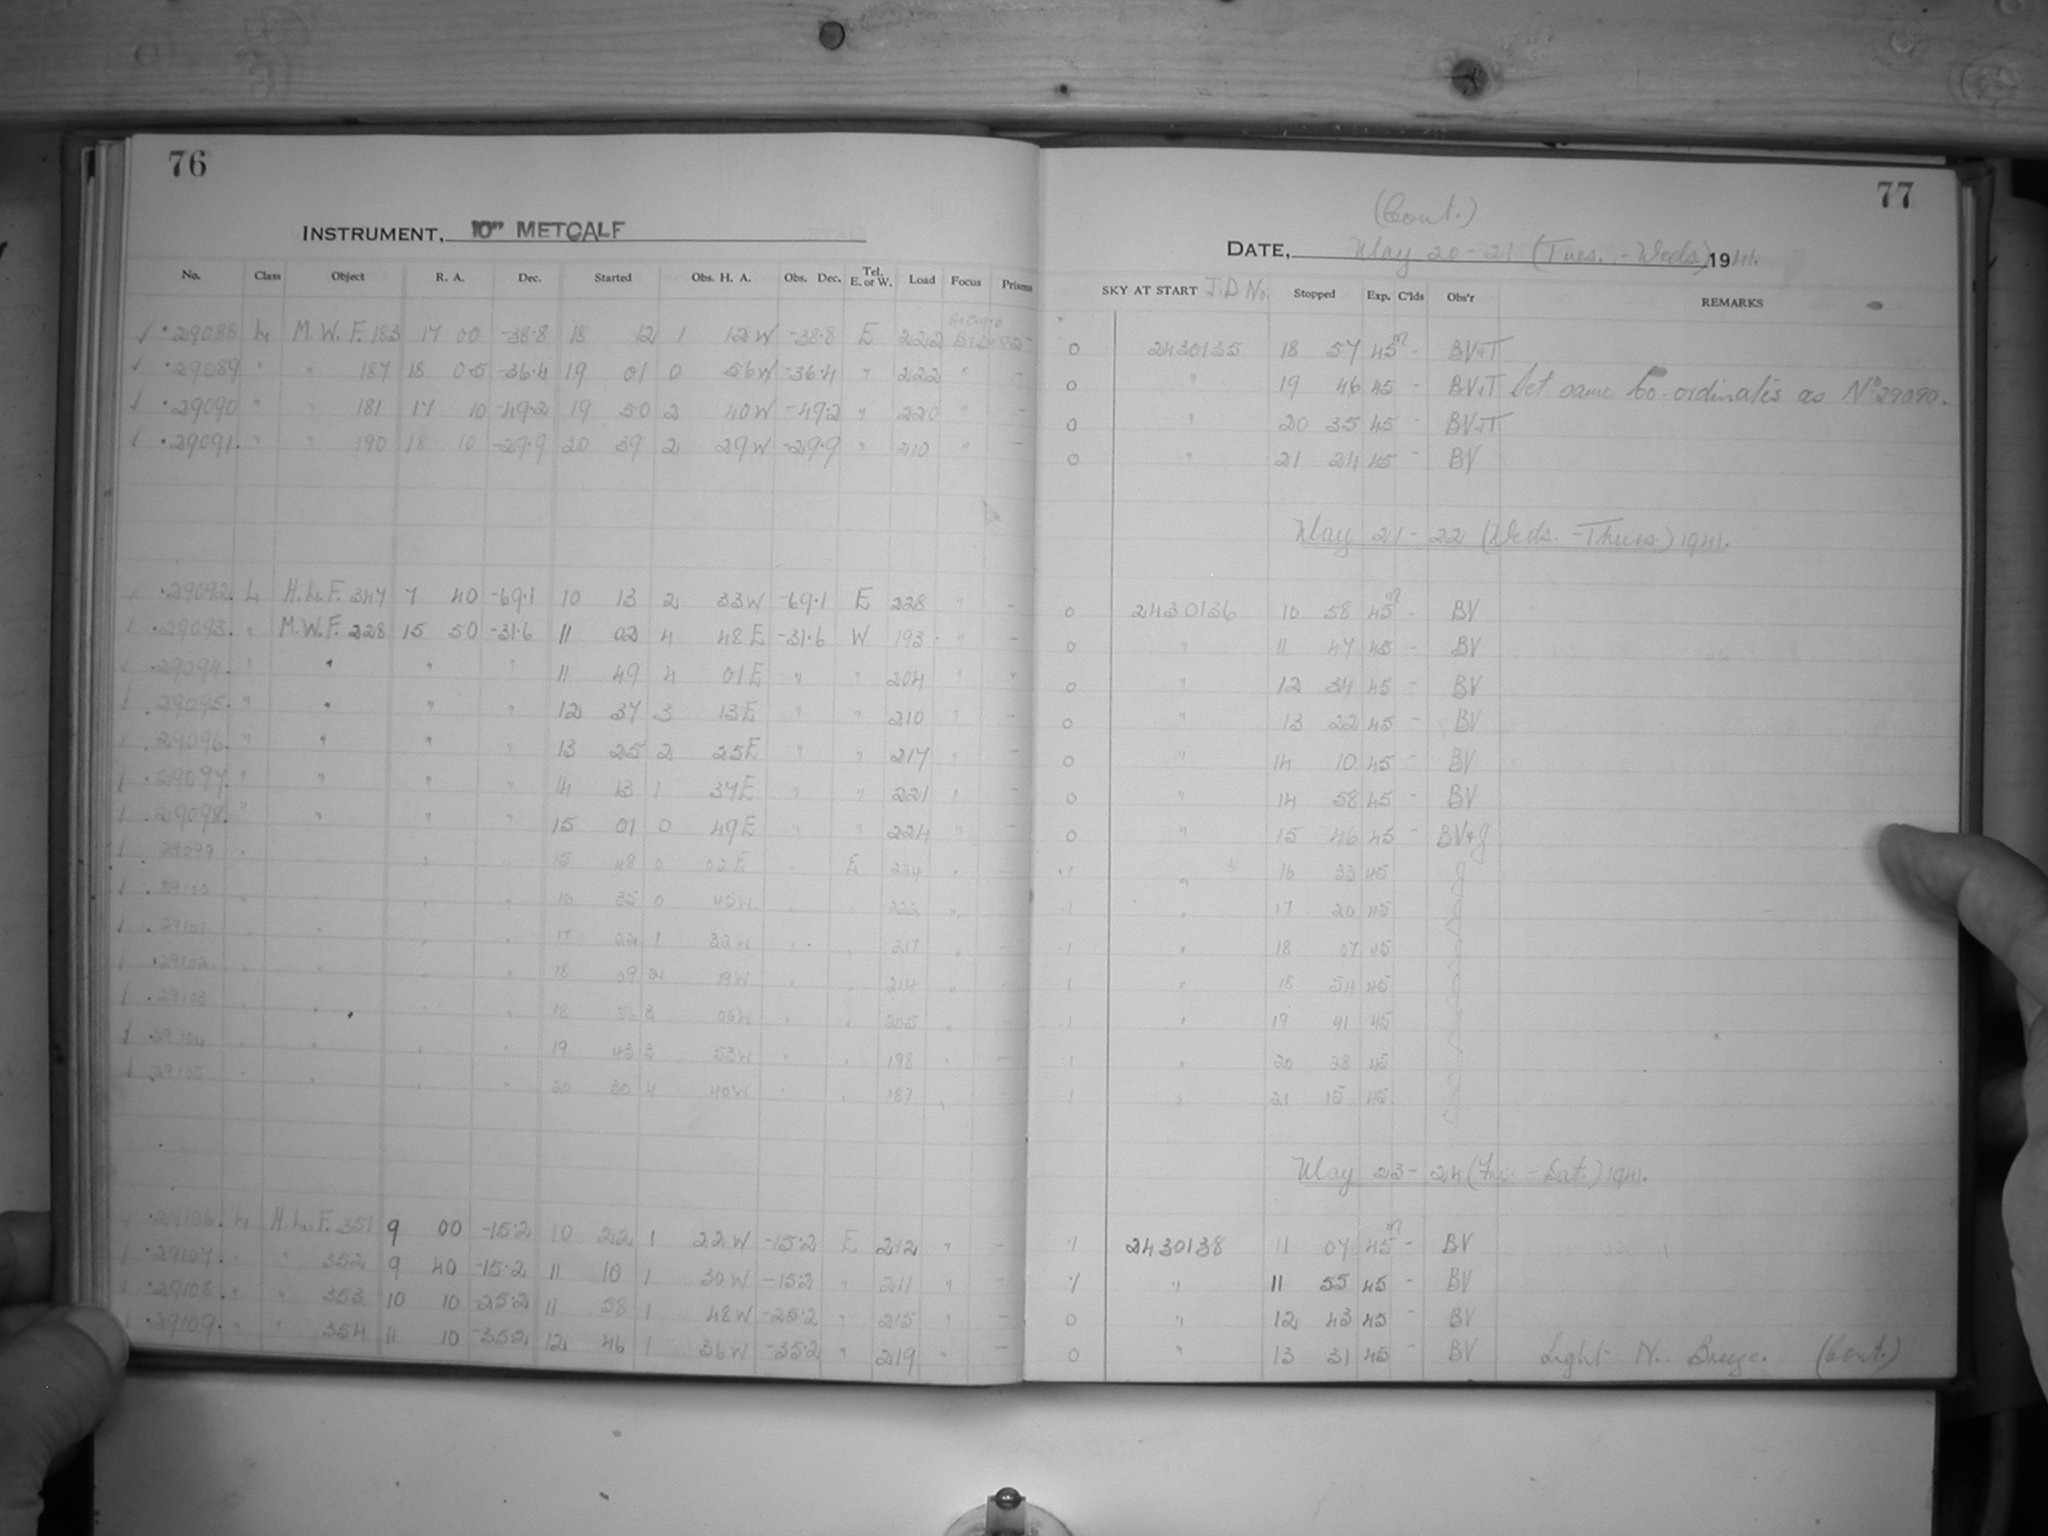 76
INSTRUMENT, 10" METCALF
No. Class Object R. A. Dec. Started Obs. H. A. Obs. Dec. Tel. E. or W. Load Focus Prisms
29088 L M.W.F. 183 17 00 -38.8 18 12 1 12W -38.8 E 222
29089 " " 187 18 05 -36.4 19 01 0 56W -36.4 " 222 " -
29090 " " 181 17 10 -49.2 19 50 2 40W -49.2 " 220 " -
29091. " " 190 18 10 -29.9 20 39 2 29W -29.9 " 210 " -
29092. L H.L.F. 347 7 40 -69.1 10 13 2 33W -69.1 E 228 " -
29093. " M.W.F. 228 15 50 -31.6 11 02 4 48E -31.6 W 193 " -
29094. " " " " 11 49 4 01E " " 204 " "
29095. " " " " 12 37 3 13E " " 210 " -
29096. " " " " 13 25 2 25E " " 217 " -
29097. " " " " 14 13 1 37E " " 221 " -
29098. " " " " 15 01 0 49E " " 224 " -
29099 " " " 15 48 0 02E " E 224 " -
29100 " " " " 35 0 45W " " 222 "
29101 " " " " 17 22 1 32W " " 217 " -
29102. " " " " 18 09 2 19W " " 214 "
29103 " " " " 18 56 3 06W " " 205 "
29104 " " " " 19 43 3 53W " " 198 " -
29105 " " " " 20 30 4 40W " " 187 " -
29106. L H.L.F. 351 9 00 -15.2 10 22 1 22W -15.2 E 212 " -
29107. " " 352 9 40 -15.2 11 10 1 30W -15.2 " 211 " -
29108. " " 353 10 10 -25.2 11 58 1 48W -25.2 " 215 " -
29109. " " 354 11 10 -35.2 12 46 1 36W -35.2 " 219 " -
77
(Cont.)
DATE, May 20-21 (Tues. - Weds) 1941.
SKY AT START J.D No. Stopped Exp. C'lds Obs'r REMARKS
0 2430135 18 57 45m - BV+T
0 " 19 46 45 - BV+T Set same Co-ordinates as No 29090.
0 " 20 35 45 - BV+T
0 " 21 24 45 - BV
May 21-22 (Weds. - Thurs.) 1941.
0 2430136 10 58 45m - BV
0 " 11 47 45 - BV
0 " 12 34 45 - BV
0 " 13 22 45 - BV
0 " 14 10 45 - BV
0 " 14 58 45 - BV
0 " 15 46 45 - BV+J
1 " 16 33 45 J
1 " 17 20 45 J
1 " 18 07 45 J
1 " 18 54 45 J
1 " 19 41 45 J
1 " 20 28 45 J
1 " 21 15 45 J
May 23-24 (Fri. - Sat.) 1941.
1 2430138 11 07 45m - BV
1 " 11 55 45 - BV
0 " 12 43 45 - BV
0 " 13 31 45 - BV Light N. Breeze. (Cont.)